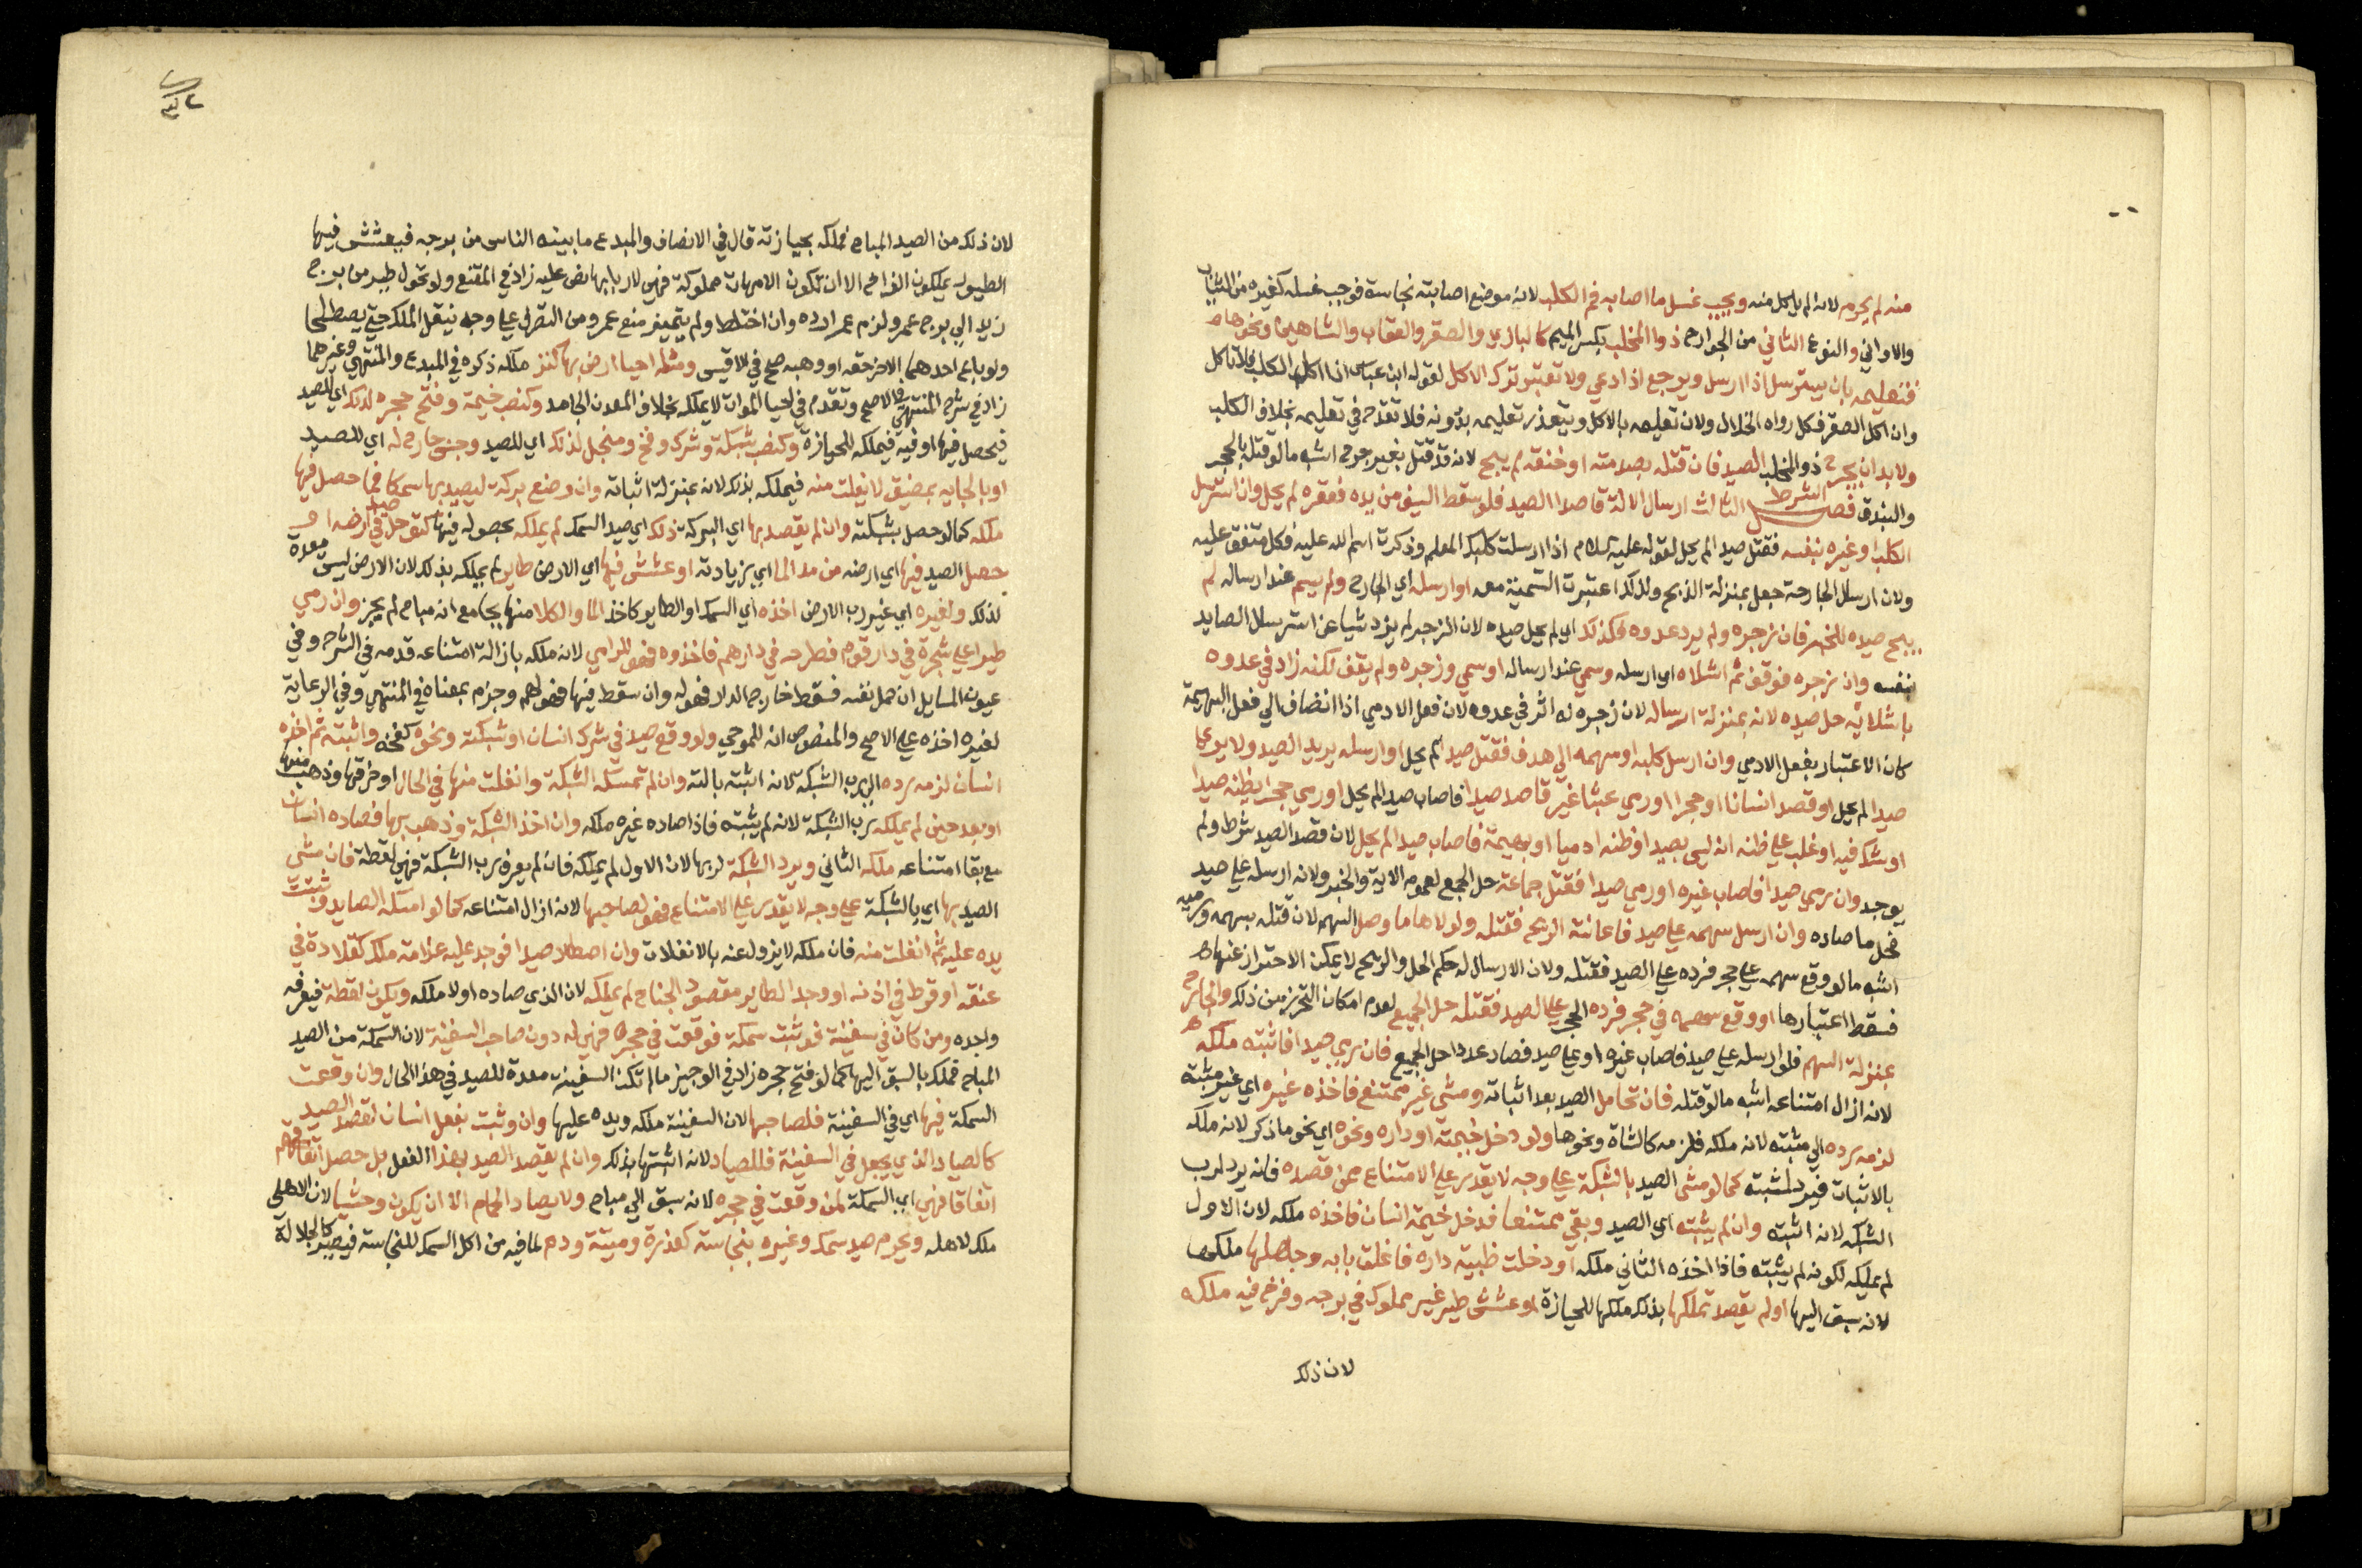 منه لم يحرم لانه لم ياكل منه ويجب غسل ما اصابه فم الكلب لانه موضع اصابته نجاسة فوجب غسله كغيره من الثياب
والاواني والنوع الثاني من الجوارح ذوا المخلب بكسر الميم كالبازي والصقر والعقاب والشاهين ونحوها
فتعليمه بان يسترسل اذا ارسل ويرجع اذا دعي ولا يعتبر ترك الاكل لقول ابن عباس اذا اكل الكلب فلا تاكل
وان اكل الصقر فكل رواه الخلال ولان تعليمه بالاكل ويتعذر تعليمه بدونه فلا تقدح في تعليمه بخلاف الكلب
ولا بد ان يجرح ذو المخلب الصيد فان قتله بصدمته او خنقه لم يبح لانه قد قتل بغير جرح اشبه ما لو قتله بالحجر
والبندق فصل الشرط الثالث ارسال الالة قاصدا الصيد فلو سقط السيف من يده فعقره لم يحل وان استرسل
الكلب او غيره بنفسه فقتل صيدا لم يحل لقوله عليه السلام اذا ارسلت كلبك المعلم وذكرت اسم الله عليه فكل متفق عليه
ولان ارسال الجارحة جعل بمنزلة الذبح ولذلك اعتبرت التسمية معه او ارسله اي الجارح ولم يسم عند ارساله لم
يبح صيده للخبر فان زجره ولم يرد عدوه فكذلك اي لم يحل صيده لان الزجر لم يزد شيا عن استرسال الصايد
بنفسه وان زجره فوقف ثم اشلاه اي ارسله وسمي عند ارساله او سمي وزجره ولم يقف لكنه زاد في عدوه
باشلائه حل صيده لانه بمنزلة ارساله لان زجره له اثر في عدوه لان فعل الادمي اذا انضاف الي فعل البهيمة
كان الاعتبار بفعل الادمي وان ارسل كلبه او سهمه الي هدف فقتل صيدا لم يحل او ارسله يريد الصيد ولا يرى
صيدا لم يحل او قصد انسانا او حجرا او رمي عبثا غير قاصد صيدا فاصاب صيدا لم يحل او رمي حجرا يظنه صيدا
او شك فيه او غلب علي ظنه انه ليس بصيد او ظنه ادميا او بهيمة فاصاب صيدا لم يحل لان قصد الصيد شرط ولم
يوجد وان رمي صيدا فاصاب غيره او رمي صيدا فقتل جماعة حل الجميع لعموم الاية والخبر ولانه ارسله علي صيد
فحل ما صاده وان ارسل سهمه علي صيد فاعانته الريح فقتله ولولاها ما وصل السهم لان قتله بسهمه ورميه
اشبه ما لو وقع سهمه علي حجر فرده علي الصيد فقتله ولان الارسال له حكم الحل والريح لا يمكن الاحتراز عنها
فسقط اعتبارها او وقع سهمه في حجر فرده الحجر علي الصيد فقتله حل الجميع لعدم امكان التحرز من ذلك والجارح
بمنزلة السهم فلو ارسله علي صيد فاصاب غيره او علي صيد فصاد عددا حل الجميع فان رمي صيدا فاثبته ملكه
لانه ازال امتناعه اشبه ما لو قتله فان تحامل الصيد بعد اثباته ومشى غير ممتنع فاخذه غيره اي غير مثبته
لزمه رده الي مثبته لانه ملكه فلزمه كالشاة ونحوها ولو دخل خيمته او داره ونحوه اي نحو ما ذكر لانه ملكه
بالاثبات فيرد لمثبته كما لو مشى الصيد بالشبكة علي وجه لا يقدر علي الامتناع ممن قصده فانه يرد لرب
الشبكة لانه اثبته وان لم يثبته اي الصيد وبقي ممتنعا فدخل خيمة انسان فاخذه ملكه لان الاول
لم يملكه لكونه لم يثبته فاذا اخذه الثاني ملكه او دخلت ظبية داره فاغلق بابه وجهلها ملكها
لانه سبق اليها او لم يقصد تملكها بذلك ملكها للحيازة او عشش طير غير مملوك في برجه وفرخ فيه ملكه
لان ذلك
لان ذلك من الصيد المباح فملكه بحيازته قال في الانصاف والمبدع ما يبنيه الناس من برجه فيعشش فيها
الطيور يملكون الفراخ الا ان تكون الامهات مملوكة فهي لاربابها نص عليه زاد في المقنع ولو تحول طير من برج
زيد الي برج عمر ولزم عمرا رده وان اختلط ولم يتميز منع عمرو من التصرف علي وجه ينقل الملك حتي يصطلحا
ولو باع احدهما الاخر حقه او وهبه صح في الاقيس ومثله احيا ارض بها كنز ملكه ذكره في المبدع والمنتهي وغيرهما
زاد في شرح المنتهي في الاصح وتقدم في احيا الموات لا يملكه بخلاف المعدن الجامد وكنصب خيمة وفتح حجره لذلك اي للصيد
فيحصل فيها او فيه فيملكه للحيازة وكنصب شبكة وشرك وفخ ومنجل لذلك اي للصيد وحبس جارح له اي للصيد
او بالجايه بمضيق لا يفلت منه فيملكه بذلك لانه بمنزلة اثباته وان وضع بركة ليصيد بها سمكا فما حصل فيها
ملكه كما لو حصل بشبكته وان لم يقصد بها اي البركة ذلك اي صيد السمك لم يملكه بحصوله فيها كتوحل صيد في ارضه او
حصل الصيد فيها اي ارضه من مد الما اي بزيادته او عشش فيها اي الارض طاير لم يملكه بذلك لان الارض ليس معدة
لذلك ولغيره اي غير رب الارض اخذه اي السمك او الطاير كاخذ الما والكلا منها بجامع انه مباح لم يحز وان رمي
طيرا علي شجرة في دار قوم فطرحه في دارهم فاخذوه فهو للرامي لانه ملكه بازالة امتناعه قدمه في الشرح وفي
عيون المسايل ان حمل نفسه فسقط خارج الدار فهو له وان سقط فيها فهو لهم وجزم بمعناه في المنتهي وفي الرعاية
لغيره اخذه علي الاصح والمنصوص انه للموحي ولو وقع صيد في شرك انسان او شبكته ونحوه كفخه واثبته ثم اخذه
انسان لزمه رده الي رب الشبكة لانه اثبته بالته وان لم تمسكه الشبكة وانفلت منها في الحال او خرقها وذهب منها
او بعد حين لم يملكه رب الشبكة لانه لم يثبته فاذا صاده غيره ملكه وان اخذ الشبكة وذهب بها فصاده انسان
مع بقا امتناعه ملكه الثاني ويرد الشبكة لربها لان الاول لم يملكه فان لم يعرف رب الشبكة فهي لقطة فان مشي
الصيد بها اي بالشبكة علي وجه لا يقدر علي الامتناع فهو لصاحبها لانه ازال امتناعه كما لو امسكه الصايد وثبتت
يده عليه ثم انفلت منه فان ملكه لا يزول عنه بالانفلات وان اصطاد صيدا فوجد عليه علامة ملك كقلادة في
عنقه او قرط في اذنه او وجد الطاير مقصوص الجناح لم يملكه لان الذي صاده اولا ملكه ويكون لقطة فيعرفه
واجده ومن كان في سفينة فوثبت سمكة فوقعت في حجره فهي له دون صاحب السفينة لان السمكة من الصيد
المباح فملك بالسبق اليها كما لو فتح حجره زاد في الوجيز ما لم تكن السفينة معدة للصيد في هذا الحال وان وقعت
السمكة فيها اي في السفينة فلصاحبها لان السفينة ملكه ويده عليها وان وثبت بفعل انسان لقصد الصيد
كالصياد الذي يجعل في السفينة فللصياد لانه اثبتها بذلك وان لم يقصد الصيد بهذا الفعل بل حصل
اتفاقا فهي اي السمكة لمن وقعت في حجره لانه سبق الي مباح ولا يصاد الحمام الا ان يكون وحشيا لان الاهلي
ملك لاهله ويحرم صيد سمك وغيره بنجاسة كعذرة وميتة ودم لما فيه من اكل السمك للنجاسة فيصير كالجلالة